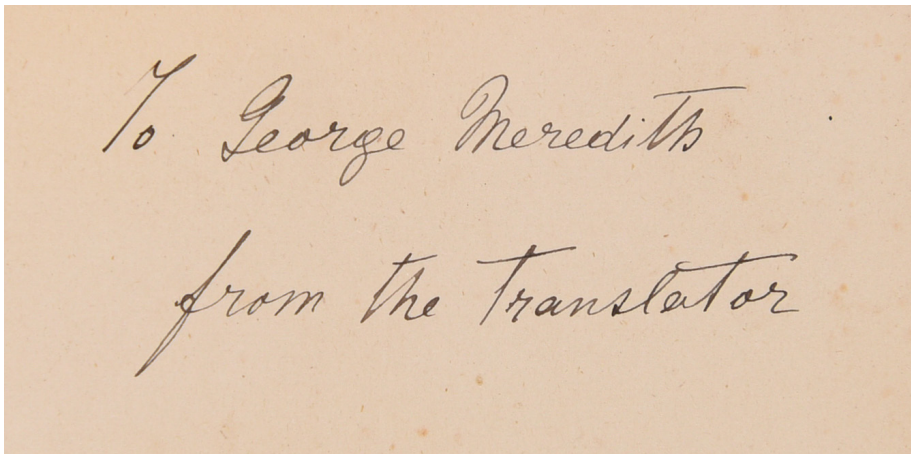 To George Meredith
from the Translator